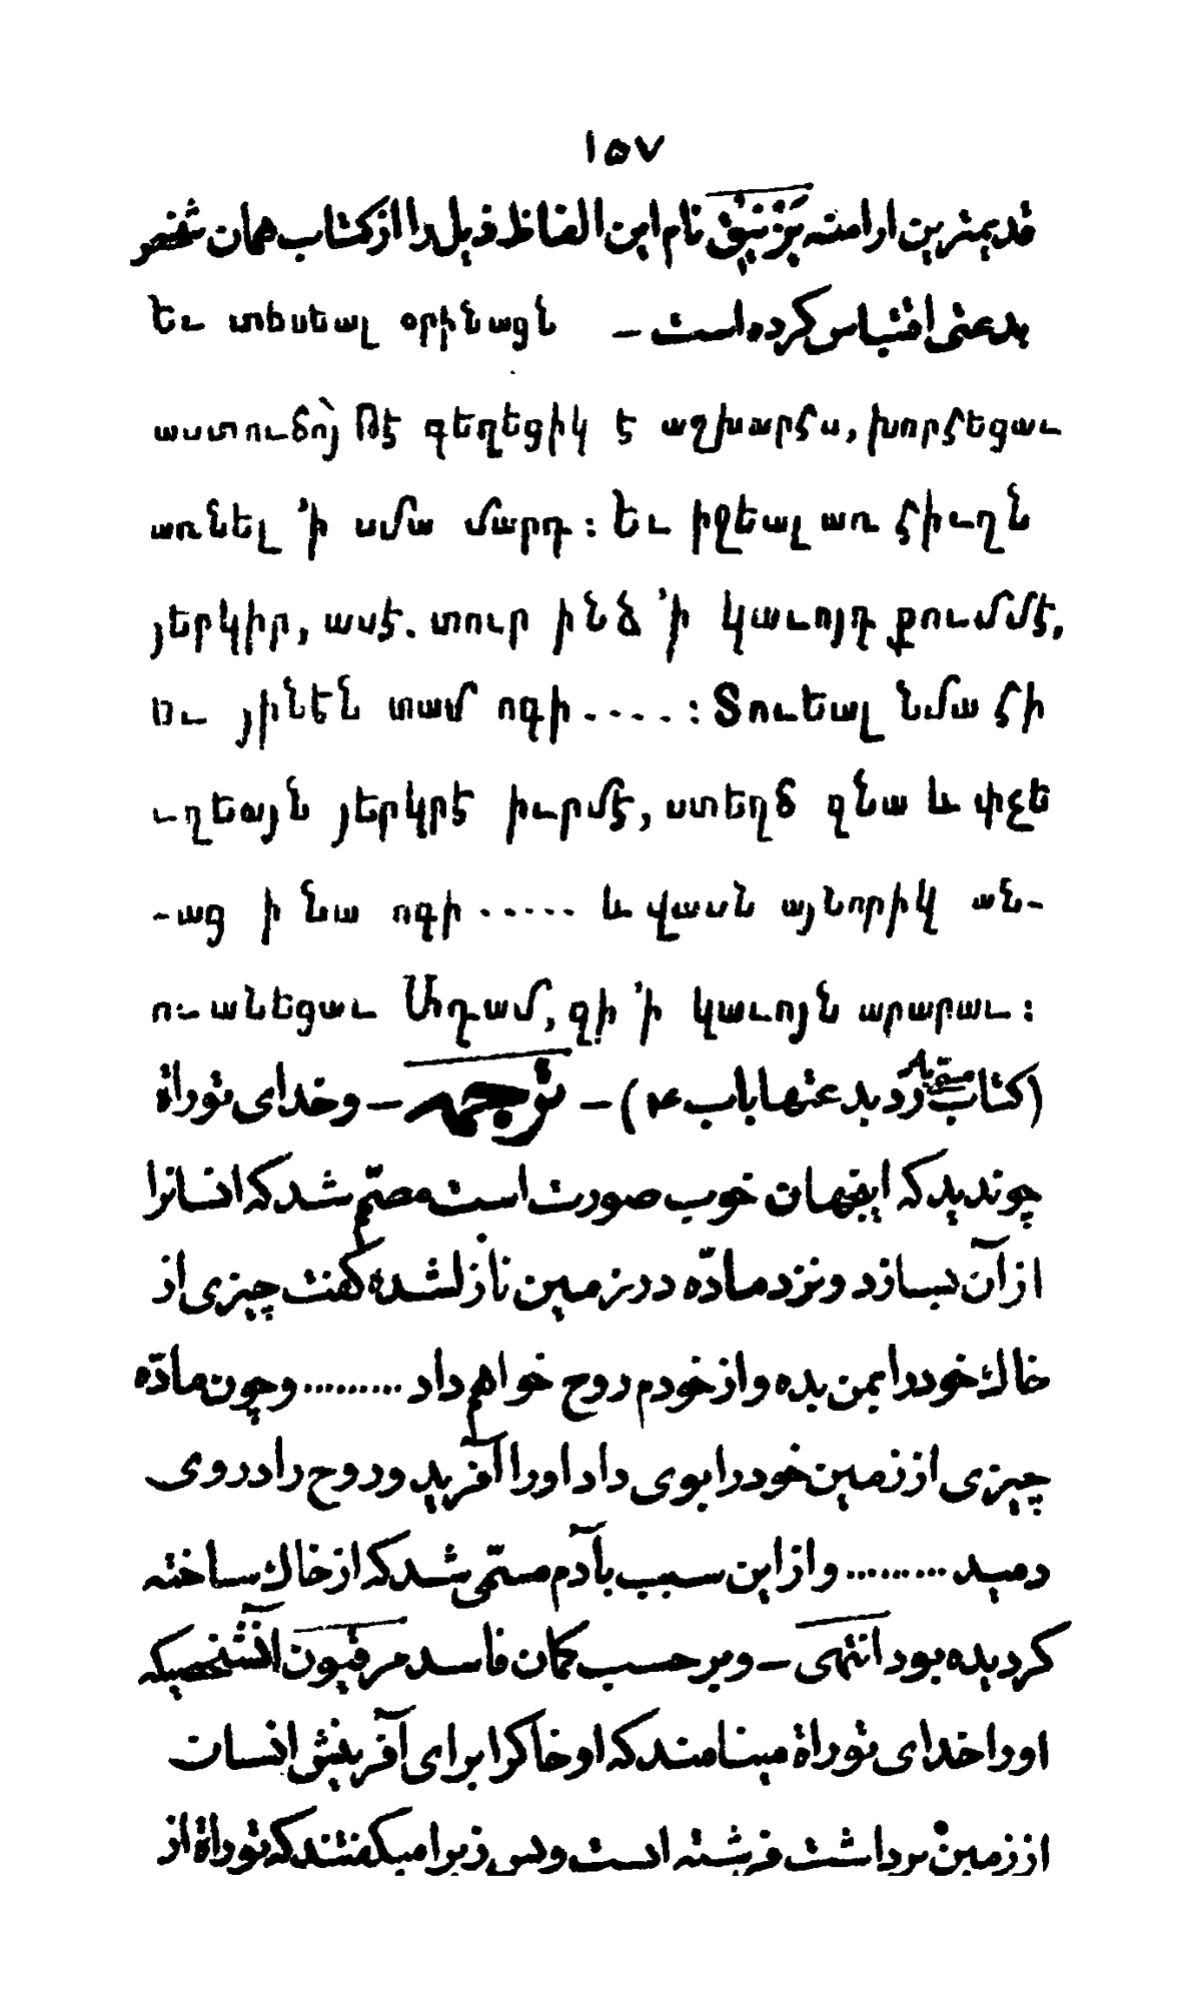 ۱۵۷
قدیمترین ارامنه یَزْنِیْق نام این الفاظ ذیل را از کتاب همان شخص
بدعتی اقتباس کرده است – Եւ տեսեալ օրինացն
աստուծոյ Թէ գեղեցիկ է աշխարհս, խորհեցաւ
առնել ՚ի սմա մարդ : Եւ իջեալ առ հիւղն
յերկիր, ասէ. տուր ինձ ՚ի կաւոյդ քումմէ,
Եւ յինէն տամ ոգի . . . . : Տուեալ նմա հի
ւղեայն յերկրէ իւրմէ, ստեղծ զնա և փչե
-աց ի նա ոգի . . . . . և վասն այնորիկ ան-
ուանեցաւ Ադամ, զի ՚ի կաւոյն արարաւ :
(کتاب مسمّی به ردّ بدعتها باب ۴) – ترجمه – و خدای توراة
چون دید که اینجهان خوب صورت است مصمّم شد که انسانرا
از آن بسازد و نزد مادّه در زمین نازل شده گفت چیزی از
خاك خود را بمن بده و از خودم روح خواهم داد ......... و چون مادّه
چیزی از زمین خود را بوی داد او را آفرید و روح را در وی
دمید ......... و از این سبب بآدم مسمّی شد که از خاك ساخته
گردیده بود انتهی – و بر حسب گمان فاسد مرقیون آنشخصیکه
او را خدای توراة مینامند که او خاکرا برای آفرینش انسان
از زمین برداشت فرشته است و بس زیرا میگفتند که توراة از